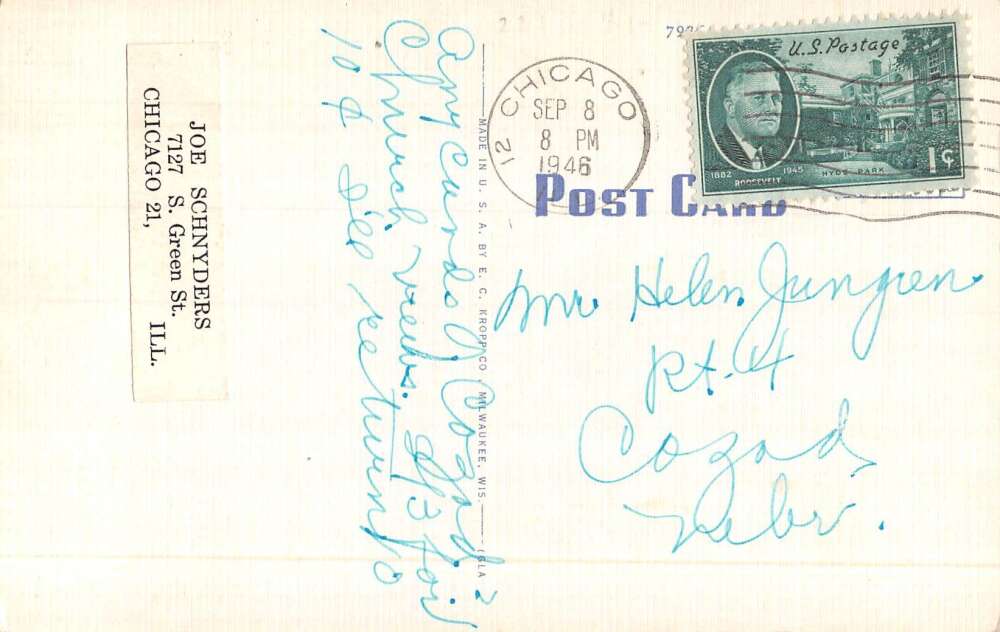 JOE SCHNYDERS
7127 S. Green St.
CHICAGO 21, ILL.
Any cards of Cozad?
Church views. 3 for
10¢ I'll return
MADE IN U. S. A. BY E. C. KROPP CO., MILWAUKEE, WIS.
12 CHICAGO
SEP 8
8 PM
1946
ILL
U.S. Postage
1882 1945
ROOSEVELT
HYDE PARK
1¢
POST CARD
Helen Jungren
Rt. 4
Cozad,
Nebr.